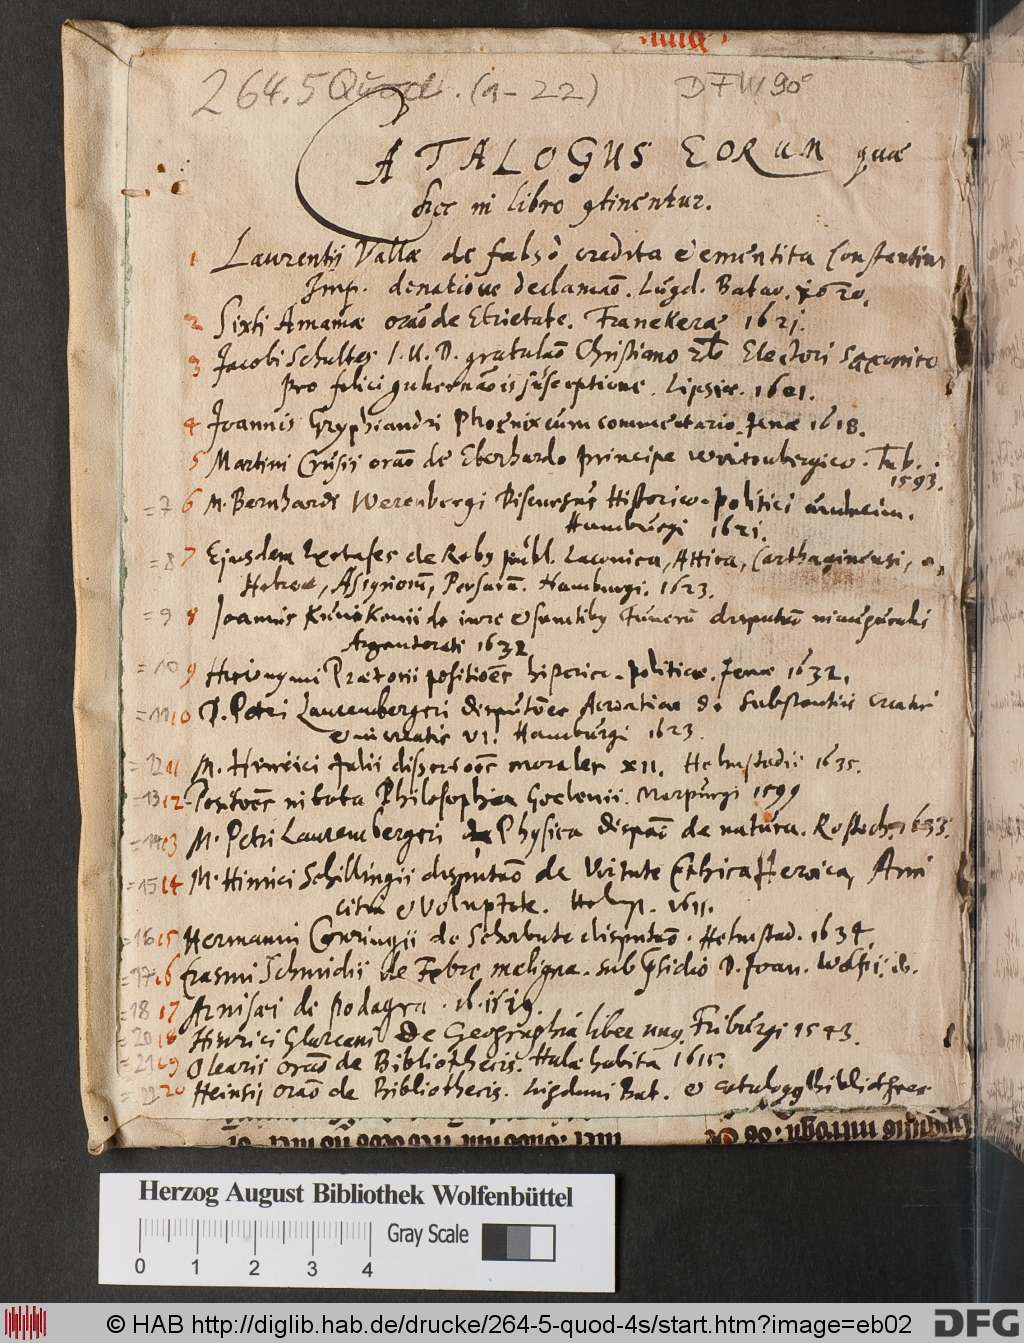 264.5 Quod. (1-22)
CATALOGUS EORUM quæ
hec in libro ꝯtinentur.
1 Laurentij Vallæ de falso credita & ementita Constantini
Imp. donatione declamaõ. Lugd. Batav. 1620.
2 Sixti Amamæ oraõ de Ebrietate. Franekeræ 1621.
3 Jacobi Schultes I. U. D. gratulaõ Christiano Electori Saxonico
pro felici gubernaõis susceptione. Lipsiæ. 1601.
4 Joannis Gryphiandri Phoenix cum commentario. Jenæ 1618.
5 Martini Crusii oraõ de Eberhardo principe Wirtenbergico. Tub.
1593.
=7 6 M. Bernhardi Werenbergi Discursus Historico-politici
Hamburgi 1621.
=8 7 Ejusdem de Rebȝ publ. Laconica, Attica, Carthaginensi,
Hebræa, Assyriorũ, Persarũ. Hamburgi. 1623.
=9 8 Joannis de iure & sanctitate Funerũ
Argentorati 1632
=10 9 Hieronymi Prætorii positiões historico-politicæ. Jenæ 1632.
=11 10 D. Petri Laurembergeri disputões de substantiis
VI. Hamburgi 1623.
=12 11 M. Hinrici Julii morales XII. Helmstadii 1635.
=13 12 Positiões Philosophia Goclenii. Marpurgi 1599
=14 13 M. Petri Laurembergeri Physica de natura. Rostoch. 1633.
=15 14 M. Hinrici Schillingii disputaõ de Virtute Ethica Heroica, Ami
citia & Voluptate. 1611.
=16 15 Hermanni Conringii de Scorbuto disputaõ. Helmstad. 1634.
=17 16 Erasmi Schmidii de Febre maligna. sub p̃sidio D. Joan. Wolfii, ib.
=18 17 Arnisæi de Podagra. ib.
=20 18 Hinrici Glareani De Geographia liber unȝ. Friburgi 1543.
=21 19 Olearii oraõ de Bibliothecis. Halæ habita 1615.
=22 20 Heinsij oraõ de Bibliothecis. Lugduni Bat. & catalogȝ bibliothecæ
Herzog August Bibliothek Wolfenbüttel
Gray Scale
0 1 2 3 4
© HAB http://diglib.hab.de/drucke/264-5-quod-4s/start.htm?image=eb02
DFG